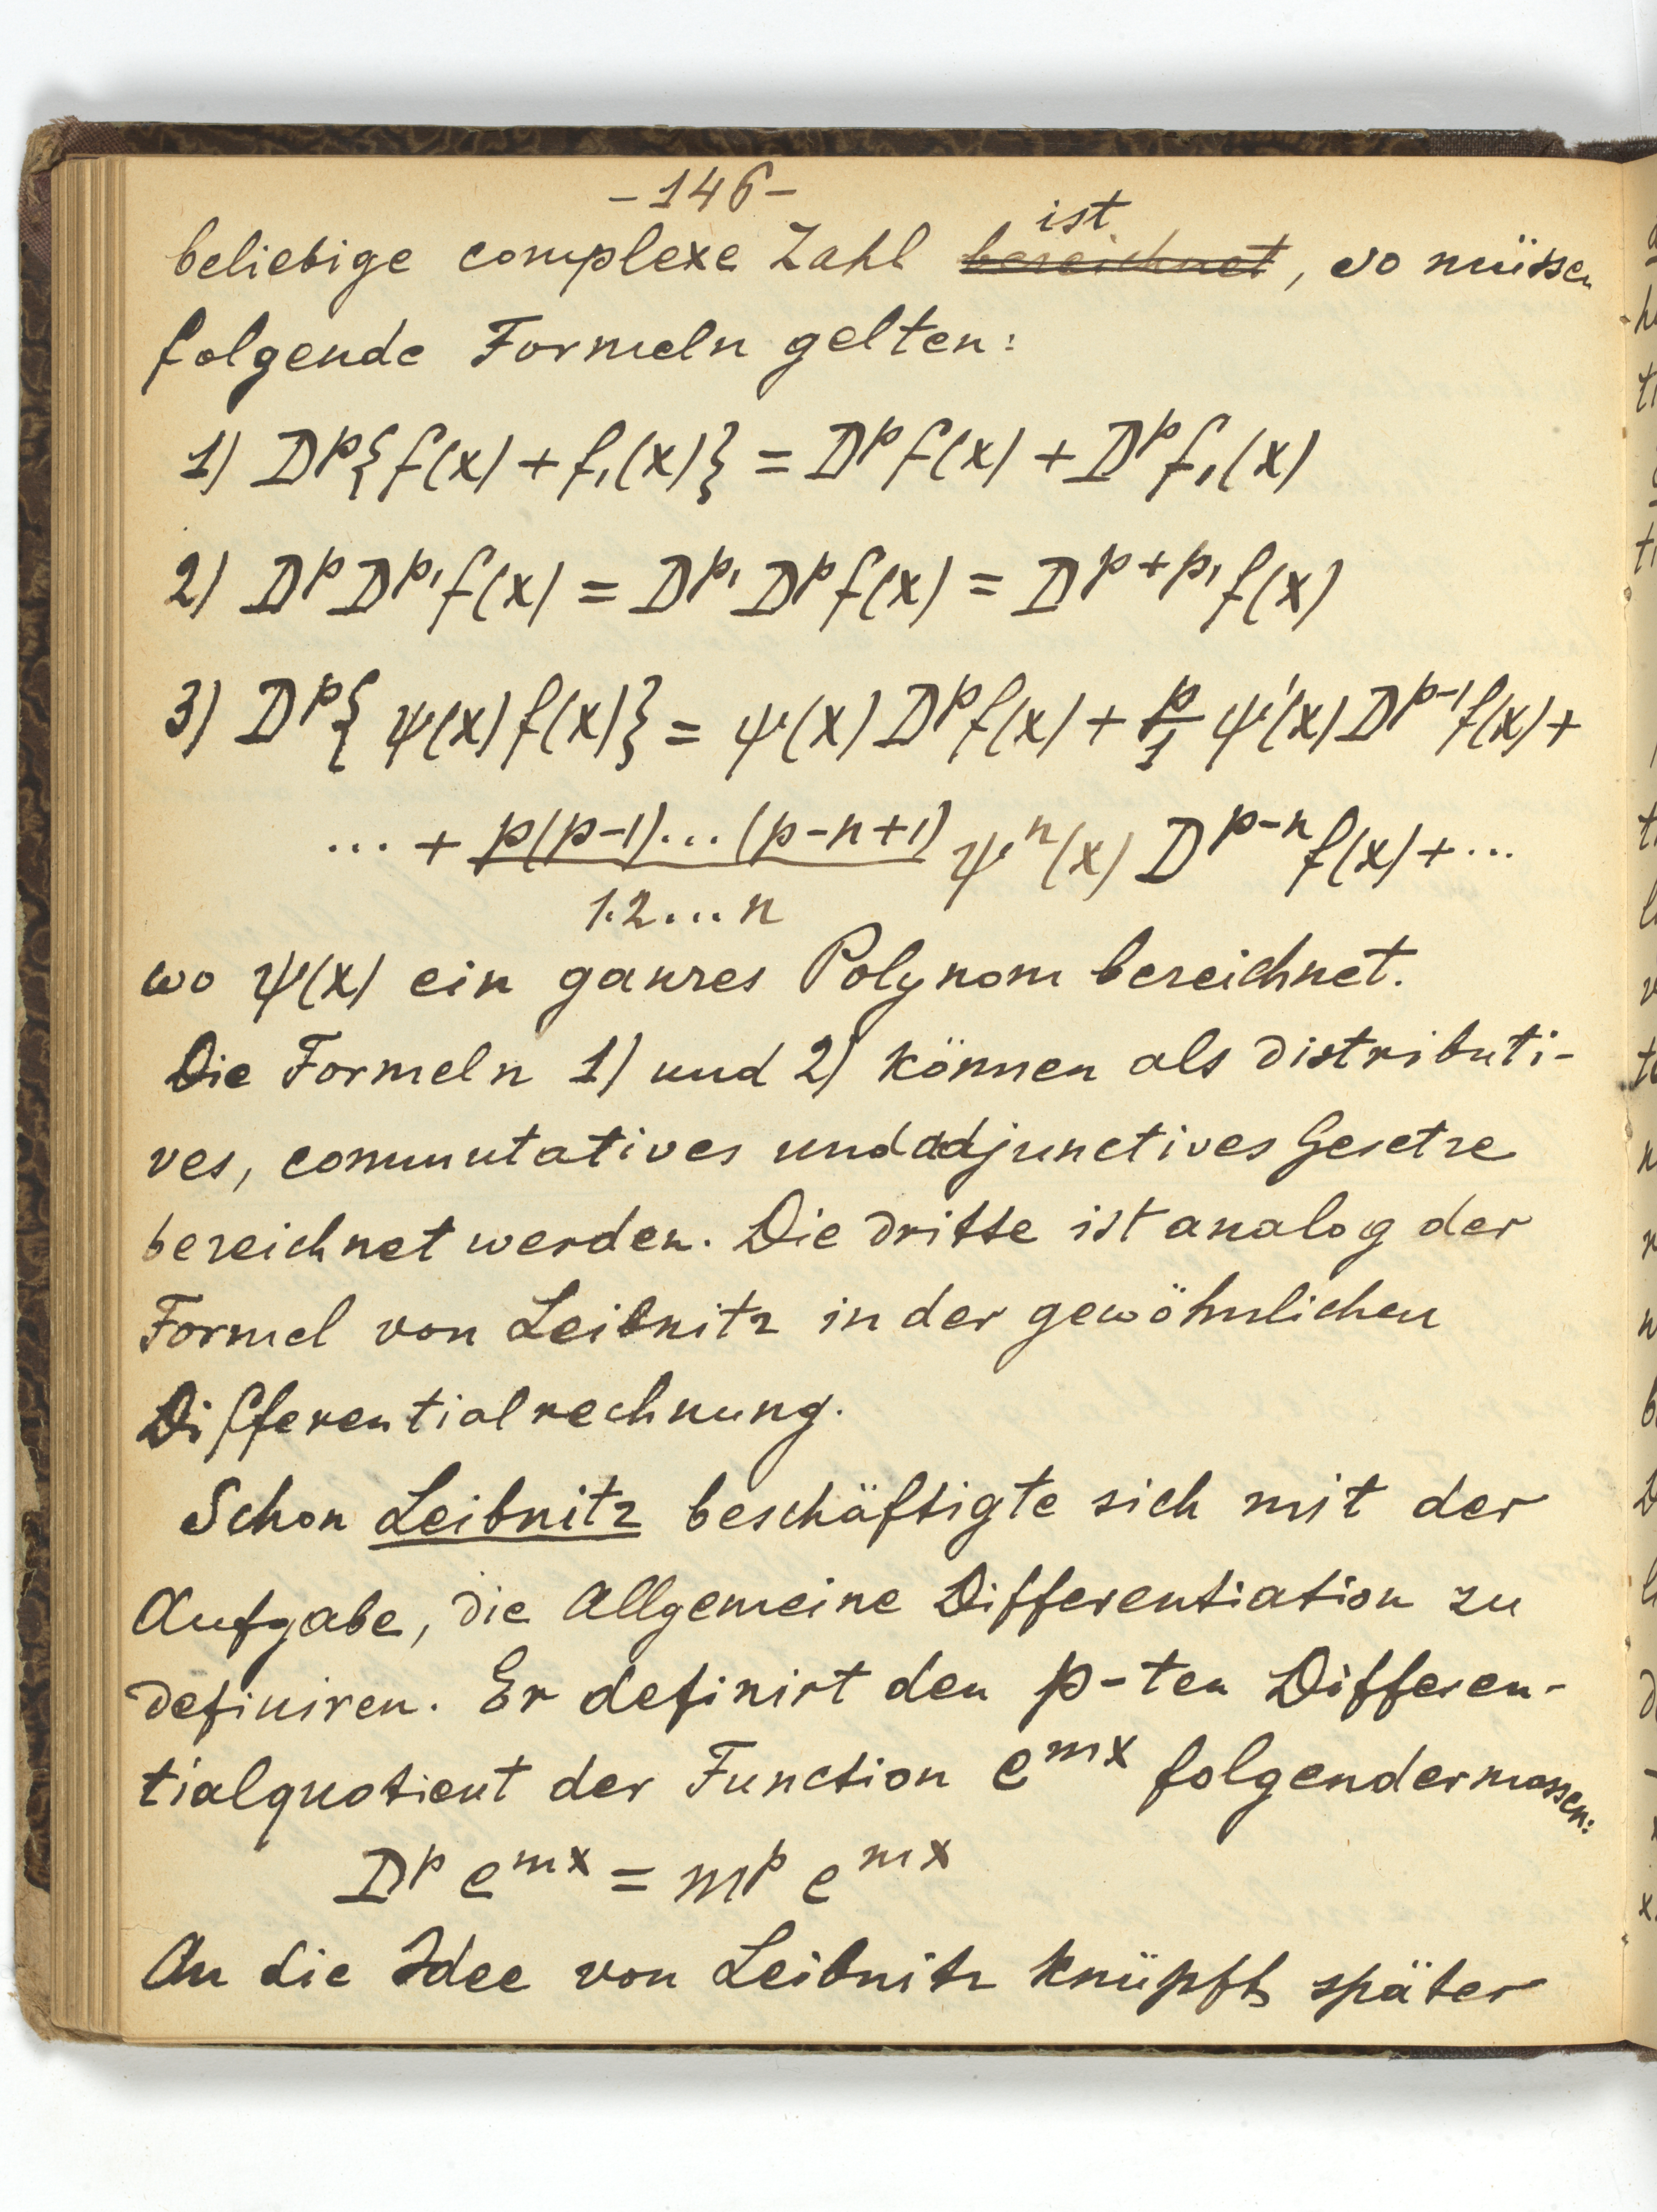 -146-
ist
beliebige complexe Zahl bezeichnet, so müssen
folgende Formeln gelten:
1) Dᵖ{f(x) + f₁(x)} = Dᵖf(x) + Dᵖf₁(x)
2) DᵖDᵖ¹f(x) = Dᵖ¹Dᵖf(x) = Dᵖ⁺ᵖ¹f(x)
3) Dᵖ{ψ(x)f(x)} = ψ(x)Dᵖf(x) + p/1 ψ'(x)Dᵖ⁻¹f(x) +
... + p(p-1)...(p-n+1)/1.2...n ψⁿ(x) Dᵖ⁻ⁿf(x) + ...
wo ψ(x) ein ganzes Polynom bezeichnet.
Die Formeln 1) und 2) können als distributi-
ves, commutatives und adjunctives Gesetze
bezeichnet werden. Die dritte ist analog der
Formel von Leibnitz in der gewöhnlichen
Differentialrechnung.
Schon Leibnitz beschäftigte sich mit der
Aufgabe, die Allgemeine Differentiation zu
definiren. Er definirt den p-ten Differen-
tialquotient der Function eᵐˣ folgendermassen:
Dᵖ eᵐˣ = mᵖ eᵐˣ
An die Idee von Leibnitz knüpft später